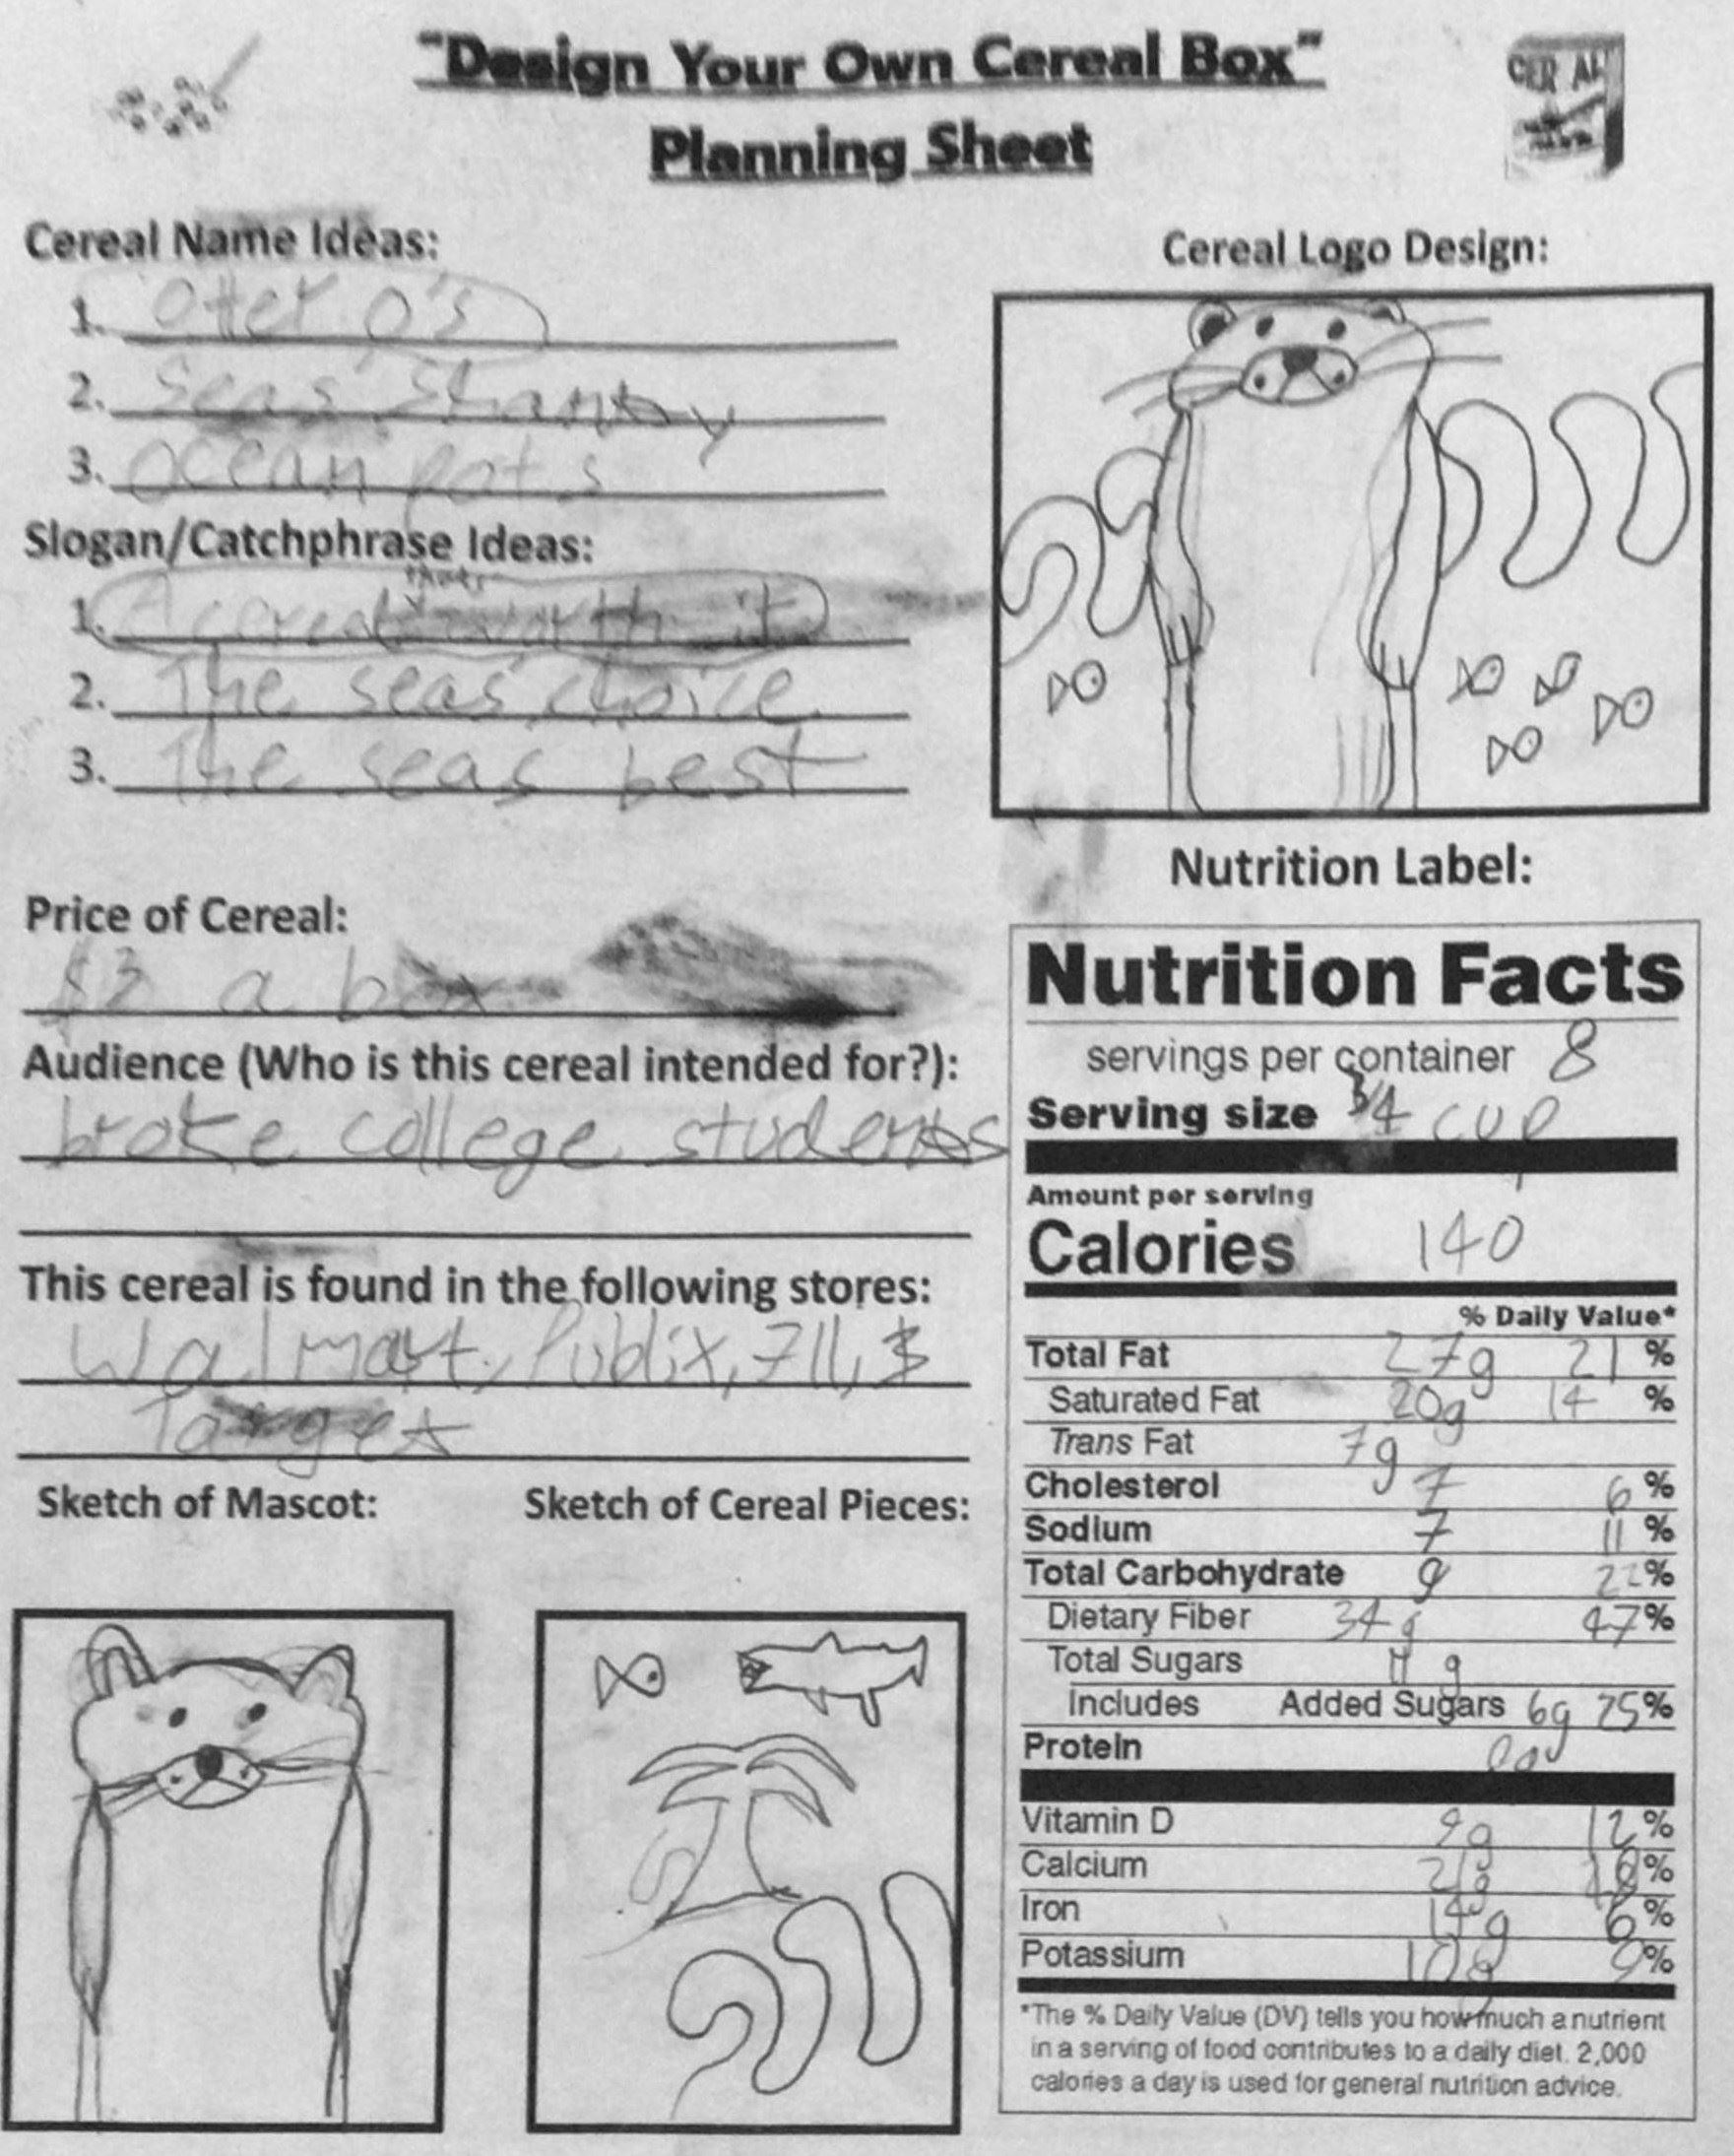 "Design Your Own Cereal Box"
Planning Sheet
CER AL
Cereal Name Ideas:
1. Otter O's
2. Seas Shanty
3. Ocean
Slogan/Catchphrase Ideas:
1. A cereal thats worth it
2. The seas choice
3. The seas best
Price of Cereal:
$3 a box
Audience (Who is this cereal intended for?):
broke college students
This cereal is found in the following stores:
Walmart, Publix, 711, $
Target
Sketch of Mascot:
Sketch of Cereal Pieces:
Cereal Logo Design:
Nutrition Label:
Nutrition Facts
servings per container 8
Serving size 3/4 cup
Amount per serving
Calories 140
% Daily Value*
Total Fat 27g 21 %
Saturated Fat 20g 14 %
Trans Fat 7g
Cholesterol 7 6 %
Sodium 7 11 %
Total Carbohydrate 22%
Dietary Fiber 34g 47%
Total Sugars g
Includes Added Sugars 6g 25%
Protein
Vitamin D 9g 12%
Calcium %
Iron 14g 6%
Potassium 10g 9%
*The % Daily Value (DV) tells you how much a nutrient
in a serving of food contributes to a daily diet. 2,000
calories a day is used for general nutrition advice.